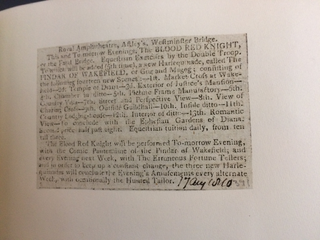 Royal Amphitheatre, Astley's, Westminster Bridge.
This and To-morrow Evenings, The BLOOD RED KNIGHT,
or the Fatal Bridge. Equestrian Exercises by the Double Troop.
To which will be added (9th time), a new Harlequinade, called The
PINDAR OF WAKEFIELD, or Gog and Magog; consisting of
the following thirteen new Scenes:—1st. Market Cross at Wake-
field—2d. Temple of Diana—3d. Exterior of Justice's Mansion—
4th. Chamber in ditto—5th. Picture Frame Manufactory—6th.
Country Inn—7th. Street and Perspective View—8th. View of
Charing Cross—9th. Outside Guildhall—10th. Inside ditto—11th.
Country Lodging-house—12th. Interior of ditto—13th. Romantic
View—to conclude with the Bohemian Gardens of Diana.
Second price half past eight. Equestrian tuition daily, from ten
till two.
The Blood Red Knight will be performed To-morrow Evening,
with the Comic Pantomime of the Pindar of Wakefield; and
every Evening next Week, with The Erroneous Fortune Tellers;
and in order to keep up a constant change, the three new Harle-
quinades will continue the Evening's Amusements every alternate
Week, with occasionally the Hunted Tailor. 17 Aug 1810